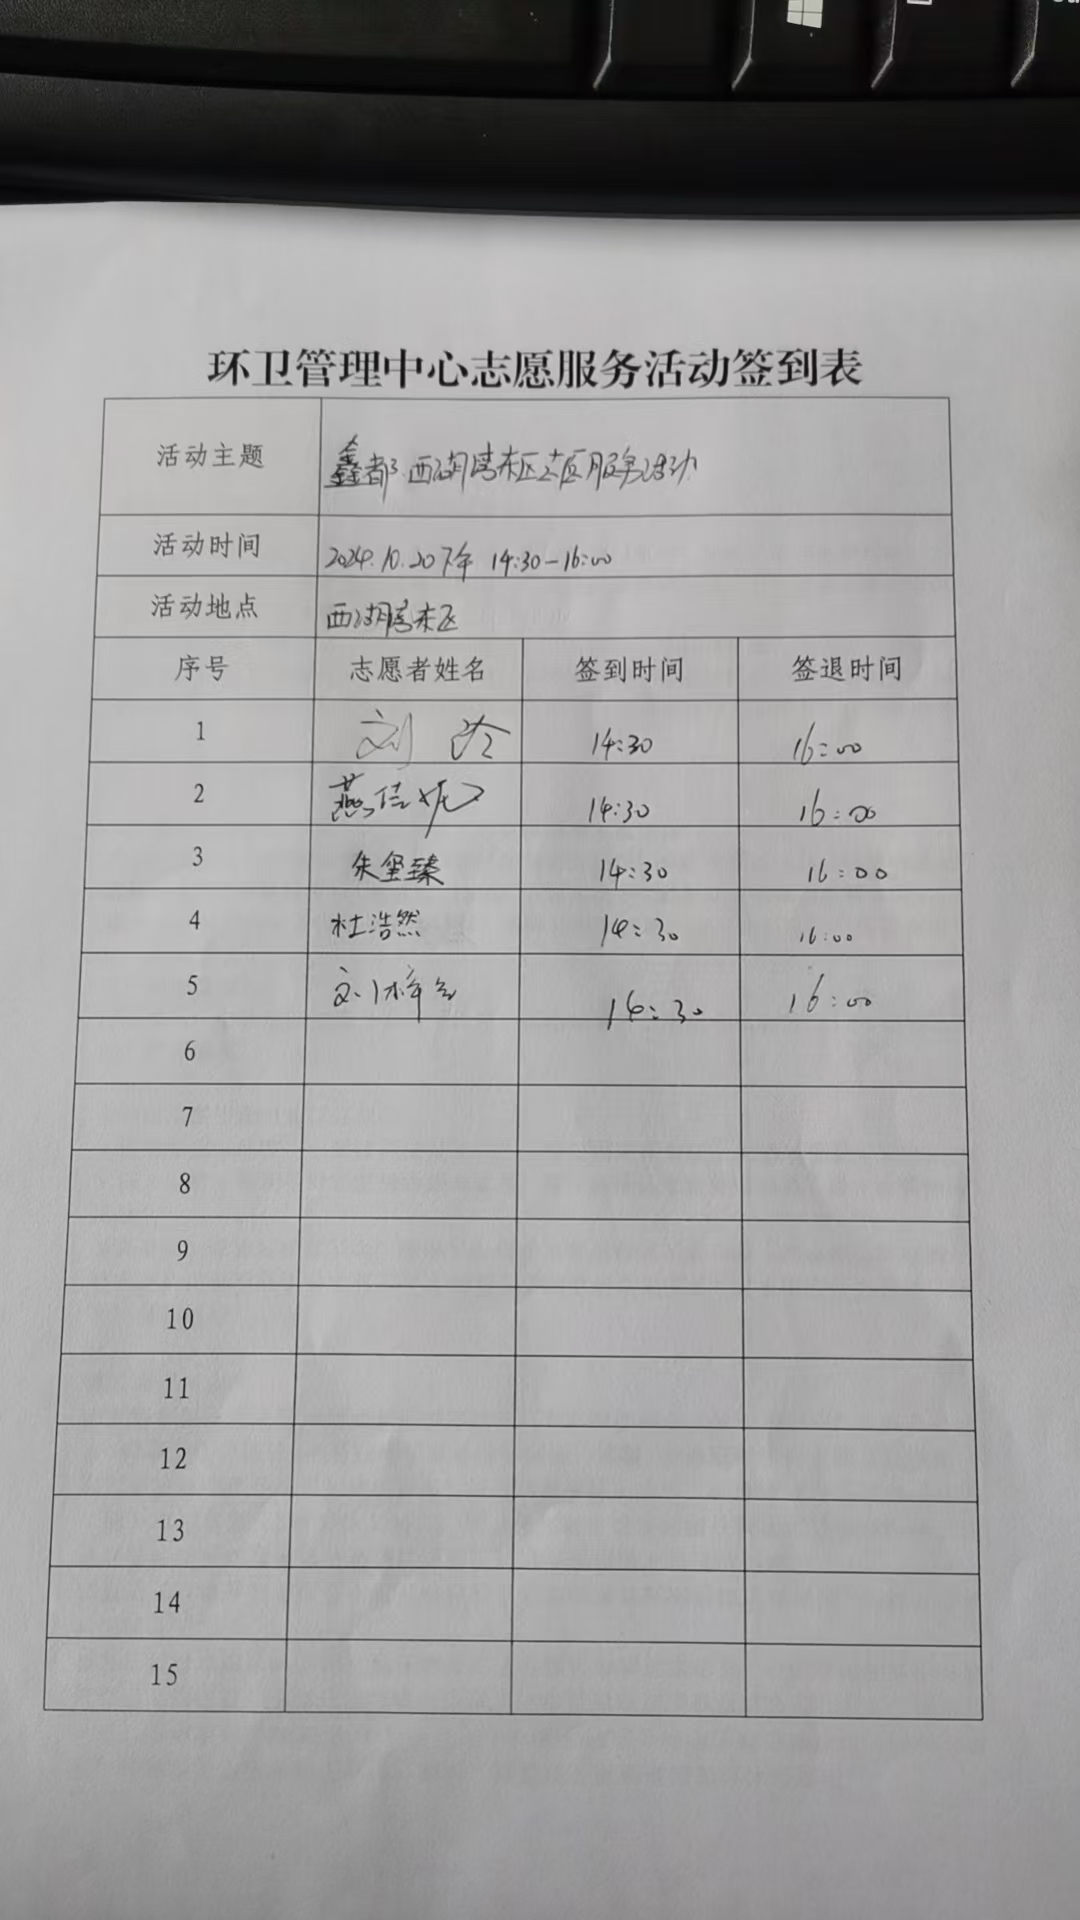 环卫管理中心志愿服务活动签到表
活动主题 鑫都西湖湾东区志愿服务活动
活动时间 2024.10.20下午 14:30-16:00
活动地点 西湖湾东区
序号 志愿者姓名 签到时间 签退时间
1 刘 14:30 16:00
2 燕佳妮 14:30 16:00
3 朱玺臻 14:30 16:00
4 杜浩然 14:30 16:00
5 刘梓 14:30 16:00
6
7
8
9
10
11
12
13
14
15